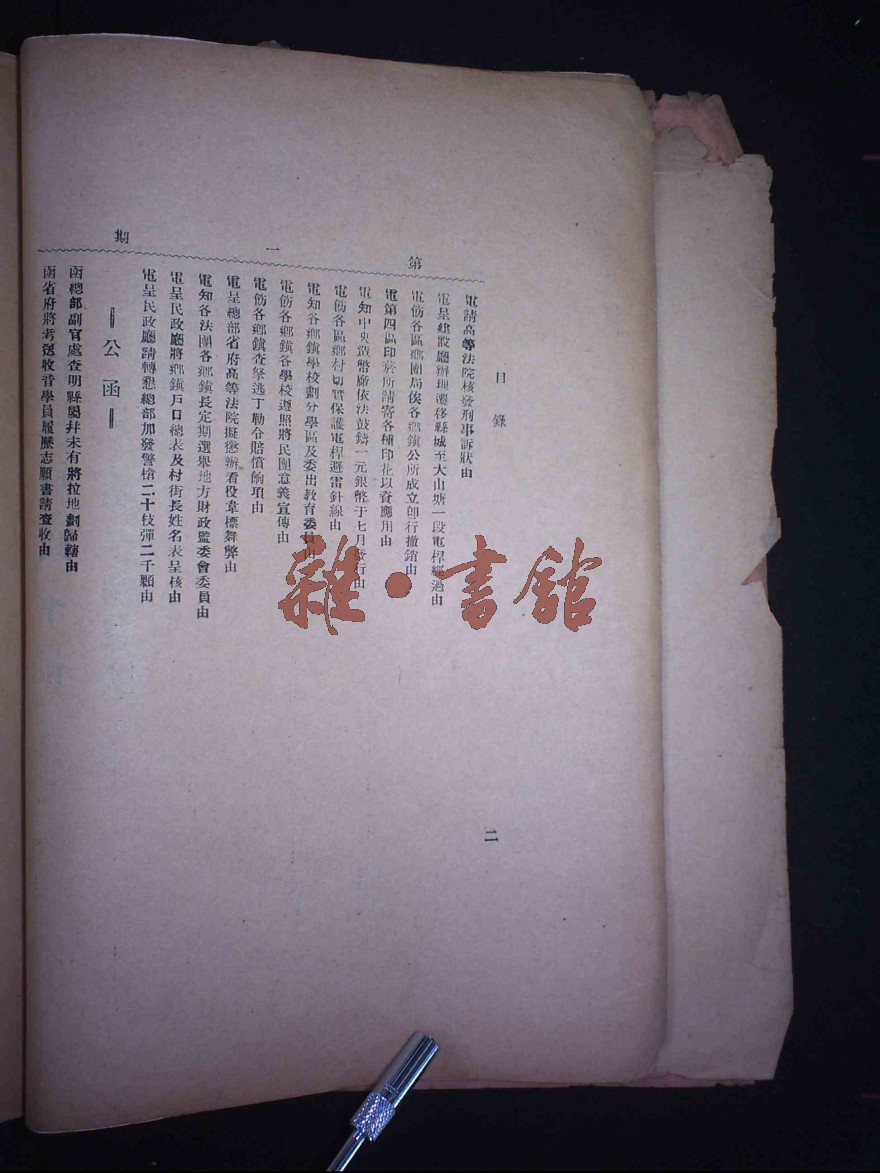 目錄
二
第一期
電請高等法院核發刑事訴狀由
電呈建設廳辦理遷移縣城至大山塘一段電桿經過由
電飭各區鄉團局俟各鄉鎮公所成立卽行撤銷由
電第四區印菸所請寄各種印花以資應用由
電知中央造幣廠依法鼓鑄一元銀幣于七月發行由
電飭各區鄉村切實保護電桿避雷針線由
電知各鄉鎮學校劃分學區及委出教育委員由
電飭各鄉鎮各學校遵照將民團意義宣傳由
電飭各鄉鎮查拏逃丁勒令賠償餉項由
電呈總部省府高等法院擬懲辦看役韋標舞弊由
電知各法團各鄉鎮長定期選舉地方財政監委會委員由
電呈民政廳將鄉鎮戶口總表及村街長姓名表呈核由
電呈民政廳請轉懇總部加發警槍二十枝彈二千顆由
公函
函總部副官處查明縣屬幷未有將拉地劃歸轄由
函省府將考選收音學員履歷志願書請查收由
雜·書館